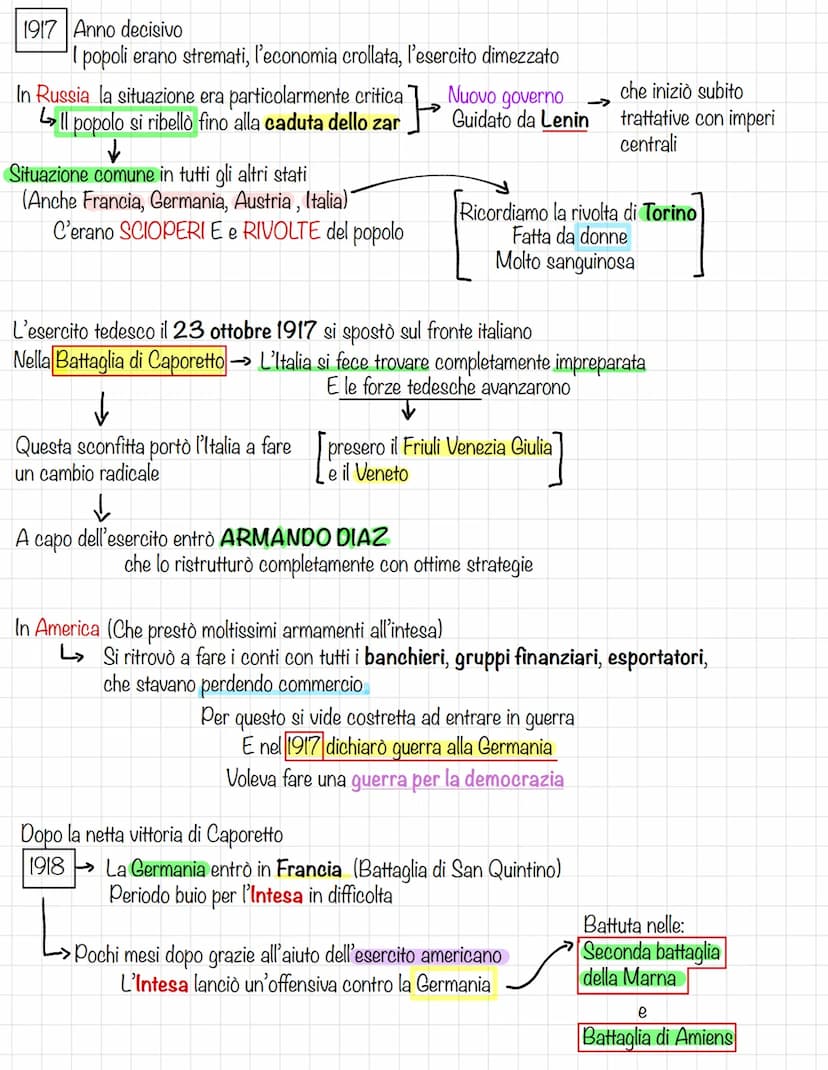 1917 Anno decisivo
I popoli erano stremati, l'economia crollata, l'esercito dimezzato
In Russia la situazione era particolarmente critica
Il popolo si ribellò fino alla caduta dello zar
Nuovo governo
Guidato da Lenin
che iniziò subito
trattative con imperi
centrali
Situazione comune in tutti gli altri stati
(Anche Francia, Germania, Austria , Italia)
C'erano SCIOPERI E e RIVOLTE del popolo
Ricordiamo la rivolta di Torino
Fatta da donne
Molto sanguinosa
L'esercito tedesco il 23 ottobre 1917 si spostò sul fronte italiano
Nella Battaglia di Caporetto → L'Italia si fece trovare completamente impreparata
E le forze tedesche avanzarono
Questa sconfitta portò l'Italia a fare
un cambio radicale
presero il Friuli Venezia Giulia
e il Veneto
A capo dell'esercito entrò ARMANDO DIAZ
che lo ristrutturò completamente con ottime strategie
In America (Che prestò moltissimi armamenti all'intesa)
Si ritrovò a fare i conti con tutti i banchieri, gruppi finanziari, esportatori,
che stavano perdendo commercio
Per questo si vide costretta ad entrare in guerra
E nel 1917 dichiarò guerra alla Germania
Voleva fare una guerra per la democrazia
Dopo la netta vittoria di Caporetto
1918 → La Germania entrò in Francia (Battaglia di San Quintino)
Periodo buio per l'Intesa in difficolta
Pochi mesi dopo grazie all'aiuto dell'esercito americano
L'Intesa lanciò un'offensiva contro la Germania
Battuta nelle:
Seconda battaglia
della Marna
e
Battaglia di Amiens